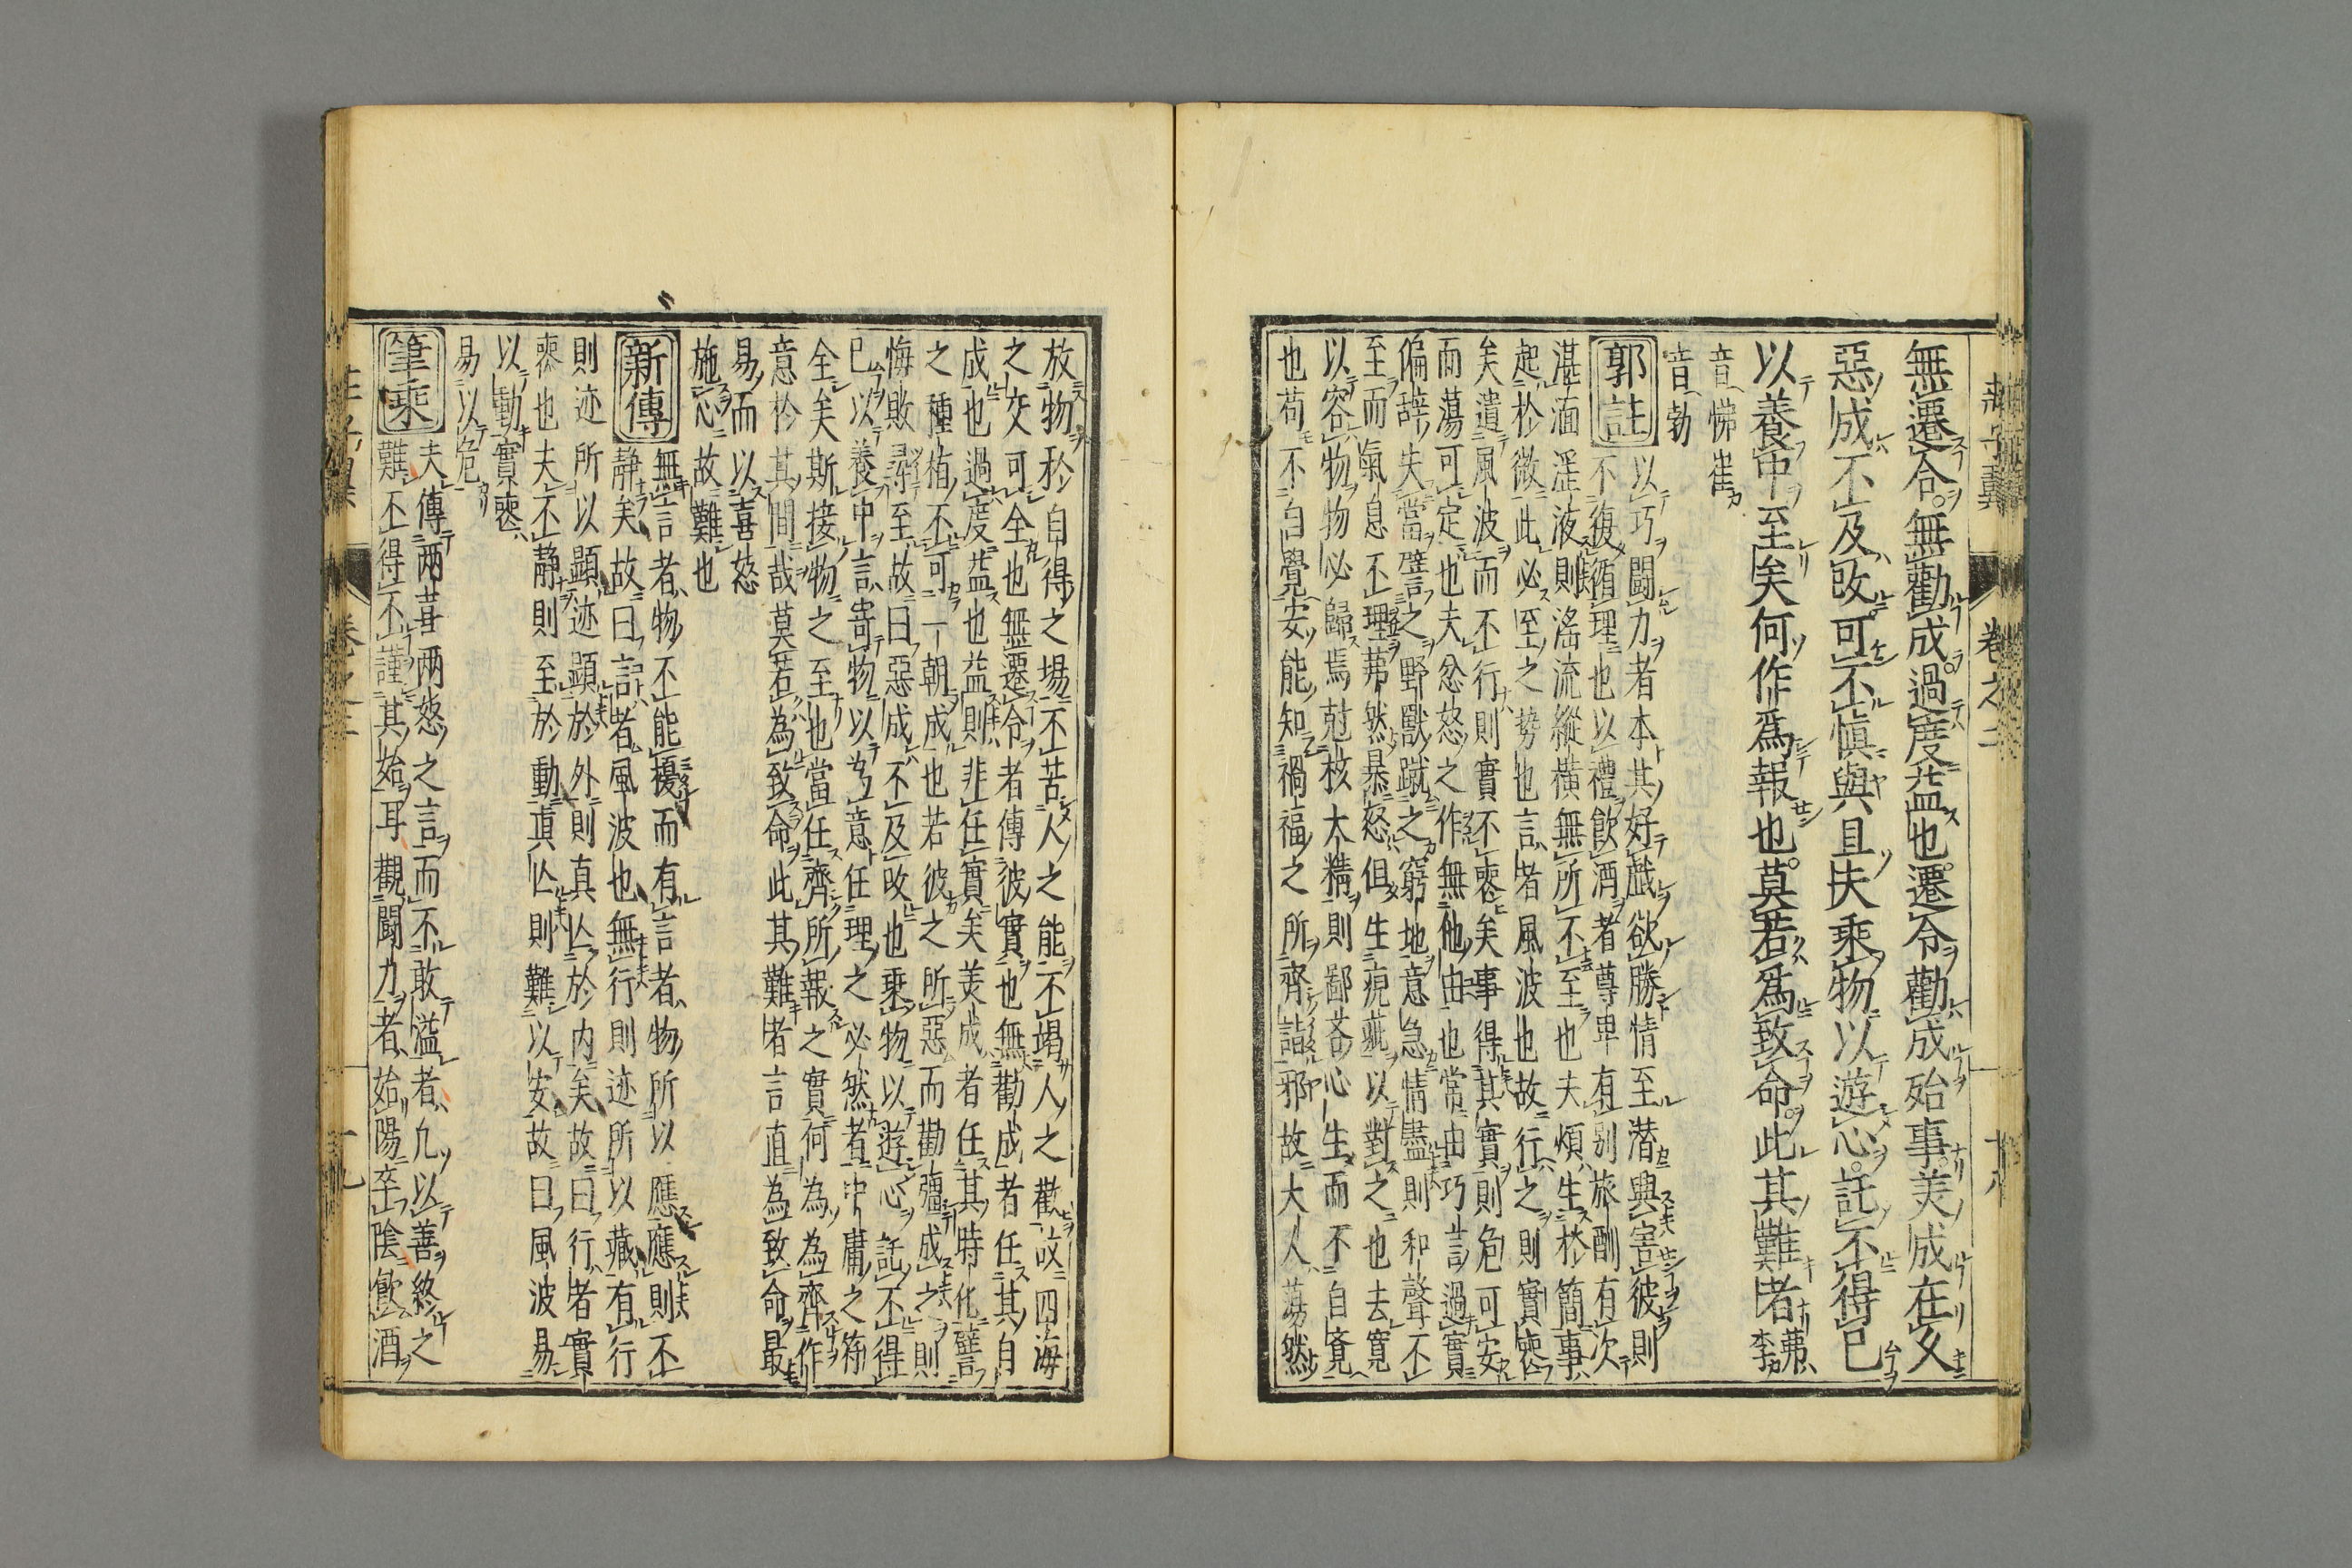 莊子翼 卷之二 十八
無遷令。無勸成。過度益也。遷令勸成殆事。美成在久
惡成不及改。可不愼與且夫乘物以遊心。託不得已
以養中至矣何作爲報也。莫若爲致命。此其難者茀、李
音悌崔
音勃
郭註
以巧鬪力者本其好戲欲勝情至潜興害彼則
不復循理也以禮飲酒者尊卑有別旅酬有次
湛湎淫液則滛流縱横無所不至也夫煩生於簡事
起於微此必至之勢也言者風波也故行之則實喪
矣遺風波而不行則實不喪矣事得其實則危可安
而蕩可定也夫忿怒之作無他由也常由巧言過實
偏辞失當譬之野獸蹴之窮地意急情盡則和聲不
至而氣息不理茀然暴怒但生疵以對之也去寛
以容物物必歸焉尅核太精則鄙吝心生而不自覺
也苟不自覺安能知禍福之所齊詣邪故大人蕩然
放物於自得之場不苦人之能不竭人之歡故四海
之交可全也無遷令者傳彼實也無勸成者任其自
成也過度益也益則非任實矣美成者任其時化譬
之種植不可一朝成也若彼之所惡而勸彊成之則
悔敗尋至故曰惡成不及改也乘物以遊心託不得
已以養中言寄物以爲意任理之必然者中庸之符
全矣斯接物之至也當任齊所報之實何為為齊作
意於其間哉莫若為致命此其難者言直為致命最
易而以喜怒
施心故難也
新傳
無言者物不能擾而有言者物所以應應則不
静矣故曰言者風波也無行則迹所以藏有行
則迹所以顕迹顕於外則真亾於内矣故曰行者實
喪也夫不静則至於動真亾則難以安故曰風波易
以動實喪
易以危
筆乘
夫傳兩喜兩怒之言而不敢溢者凢以善終之
難不得不謹其始耳觀鬪力者始陽卒陰飲酒
卷之二 十九